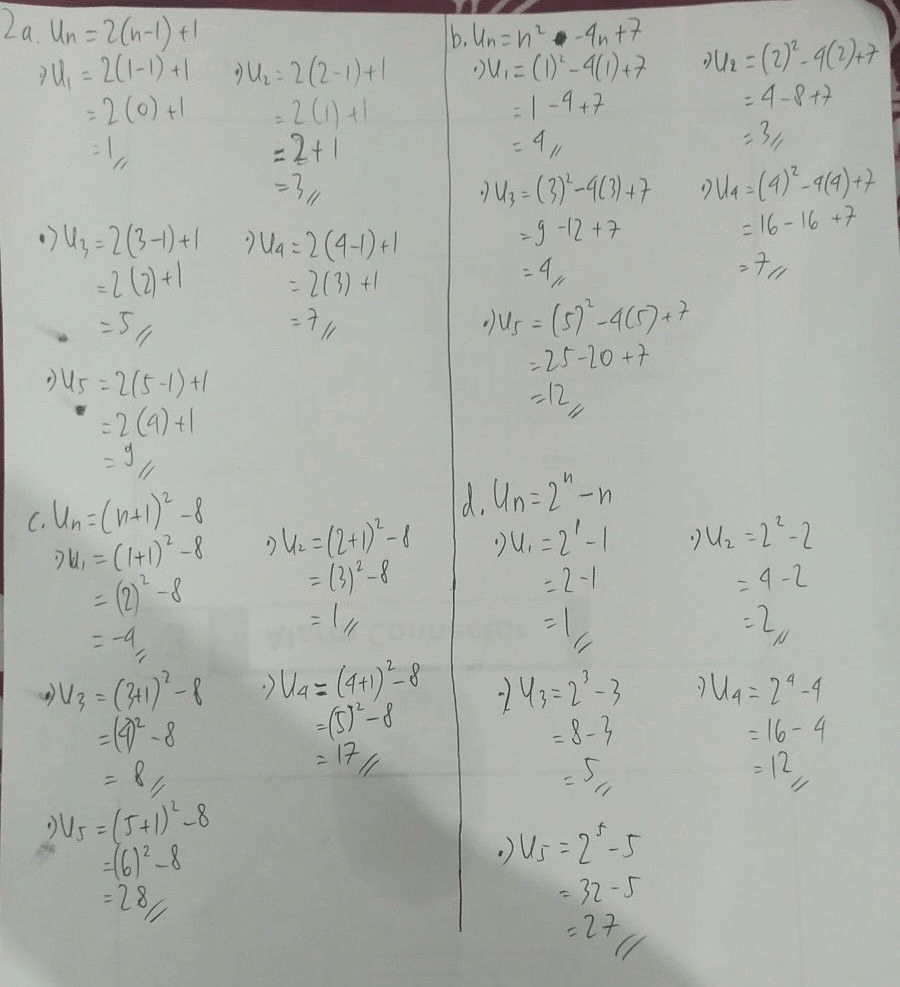 2a. Un = 2(n-1)+1
•) U1 = 2(1-1)+1
= 2(0)+1
= 1//
•) U2 = 2(2-1)+1
= 2(1)+1
= 2+1
= 3//
•) U3 = 2(3-1)+1
= 2(2)+1
= 5//
•) U4 = 2(4-1)+1
= 2(3)+1
= 7//
•) U5 = 2(5-1)+1
= 2(4)+1
= 9//
b. Un = n² - 4n+7
•) U1 = (1)² - 4(1)+7
= 1 - 4+7
= 4//
•) U2 = (2)² - 4(2)+7
= 4-8+7
= 3//
•) U3 = (3)² - 4(3)+7
= 9 - 12 + 7
= 4//
•) U4 = (4)² - 4(4)+7
= 16 - 16 + 7
= 7//
•) U5 = (5)² - 4(5)+7
= 25-20+7
= 12//
c. Un = (n+1)² - 8
•) U1 = (1+1)² - 8
= (2)² - 8
= -4//
•) U2 = (2+1)² - 8
= (3)² - 8
= 1//
•) U3 = (3+1)² - 8
= (4)² - 8
= 8//
•) U4 = (4+1)² - 8
= (5)² - 8
= 17//
•) U5 = (5+1)² - 8
= (6)² - 8
= 28//
d. Un = 2ⁿ - n
•) U1 = 2¹ - 1
= 2-1
= 1//
•) U2 = 2² - 2
= 4-2
= 2//
•) U3 = 2³ - 3
= 8-3
= 5//
•) U4 = 2⁴ - 4
= 16 - 4
= 12//
•) U5 = 2⁵ - 5
= 32 - 5
= 27//
Alarm Connector